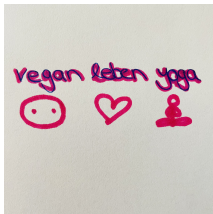 vegan leben yoga